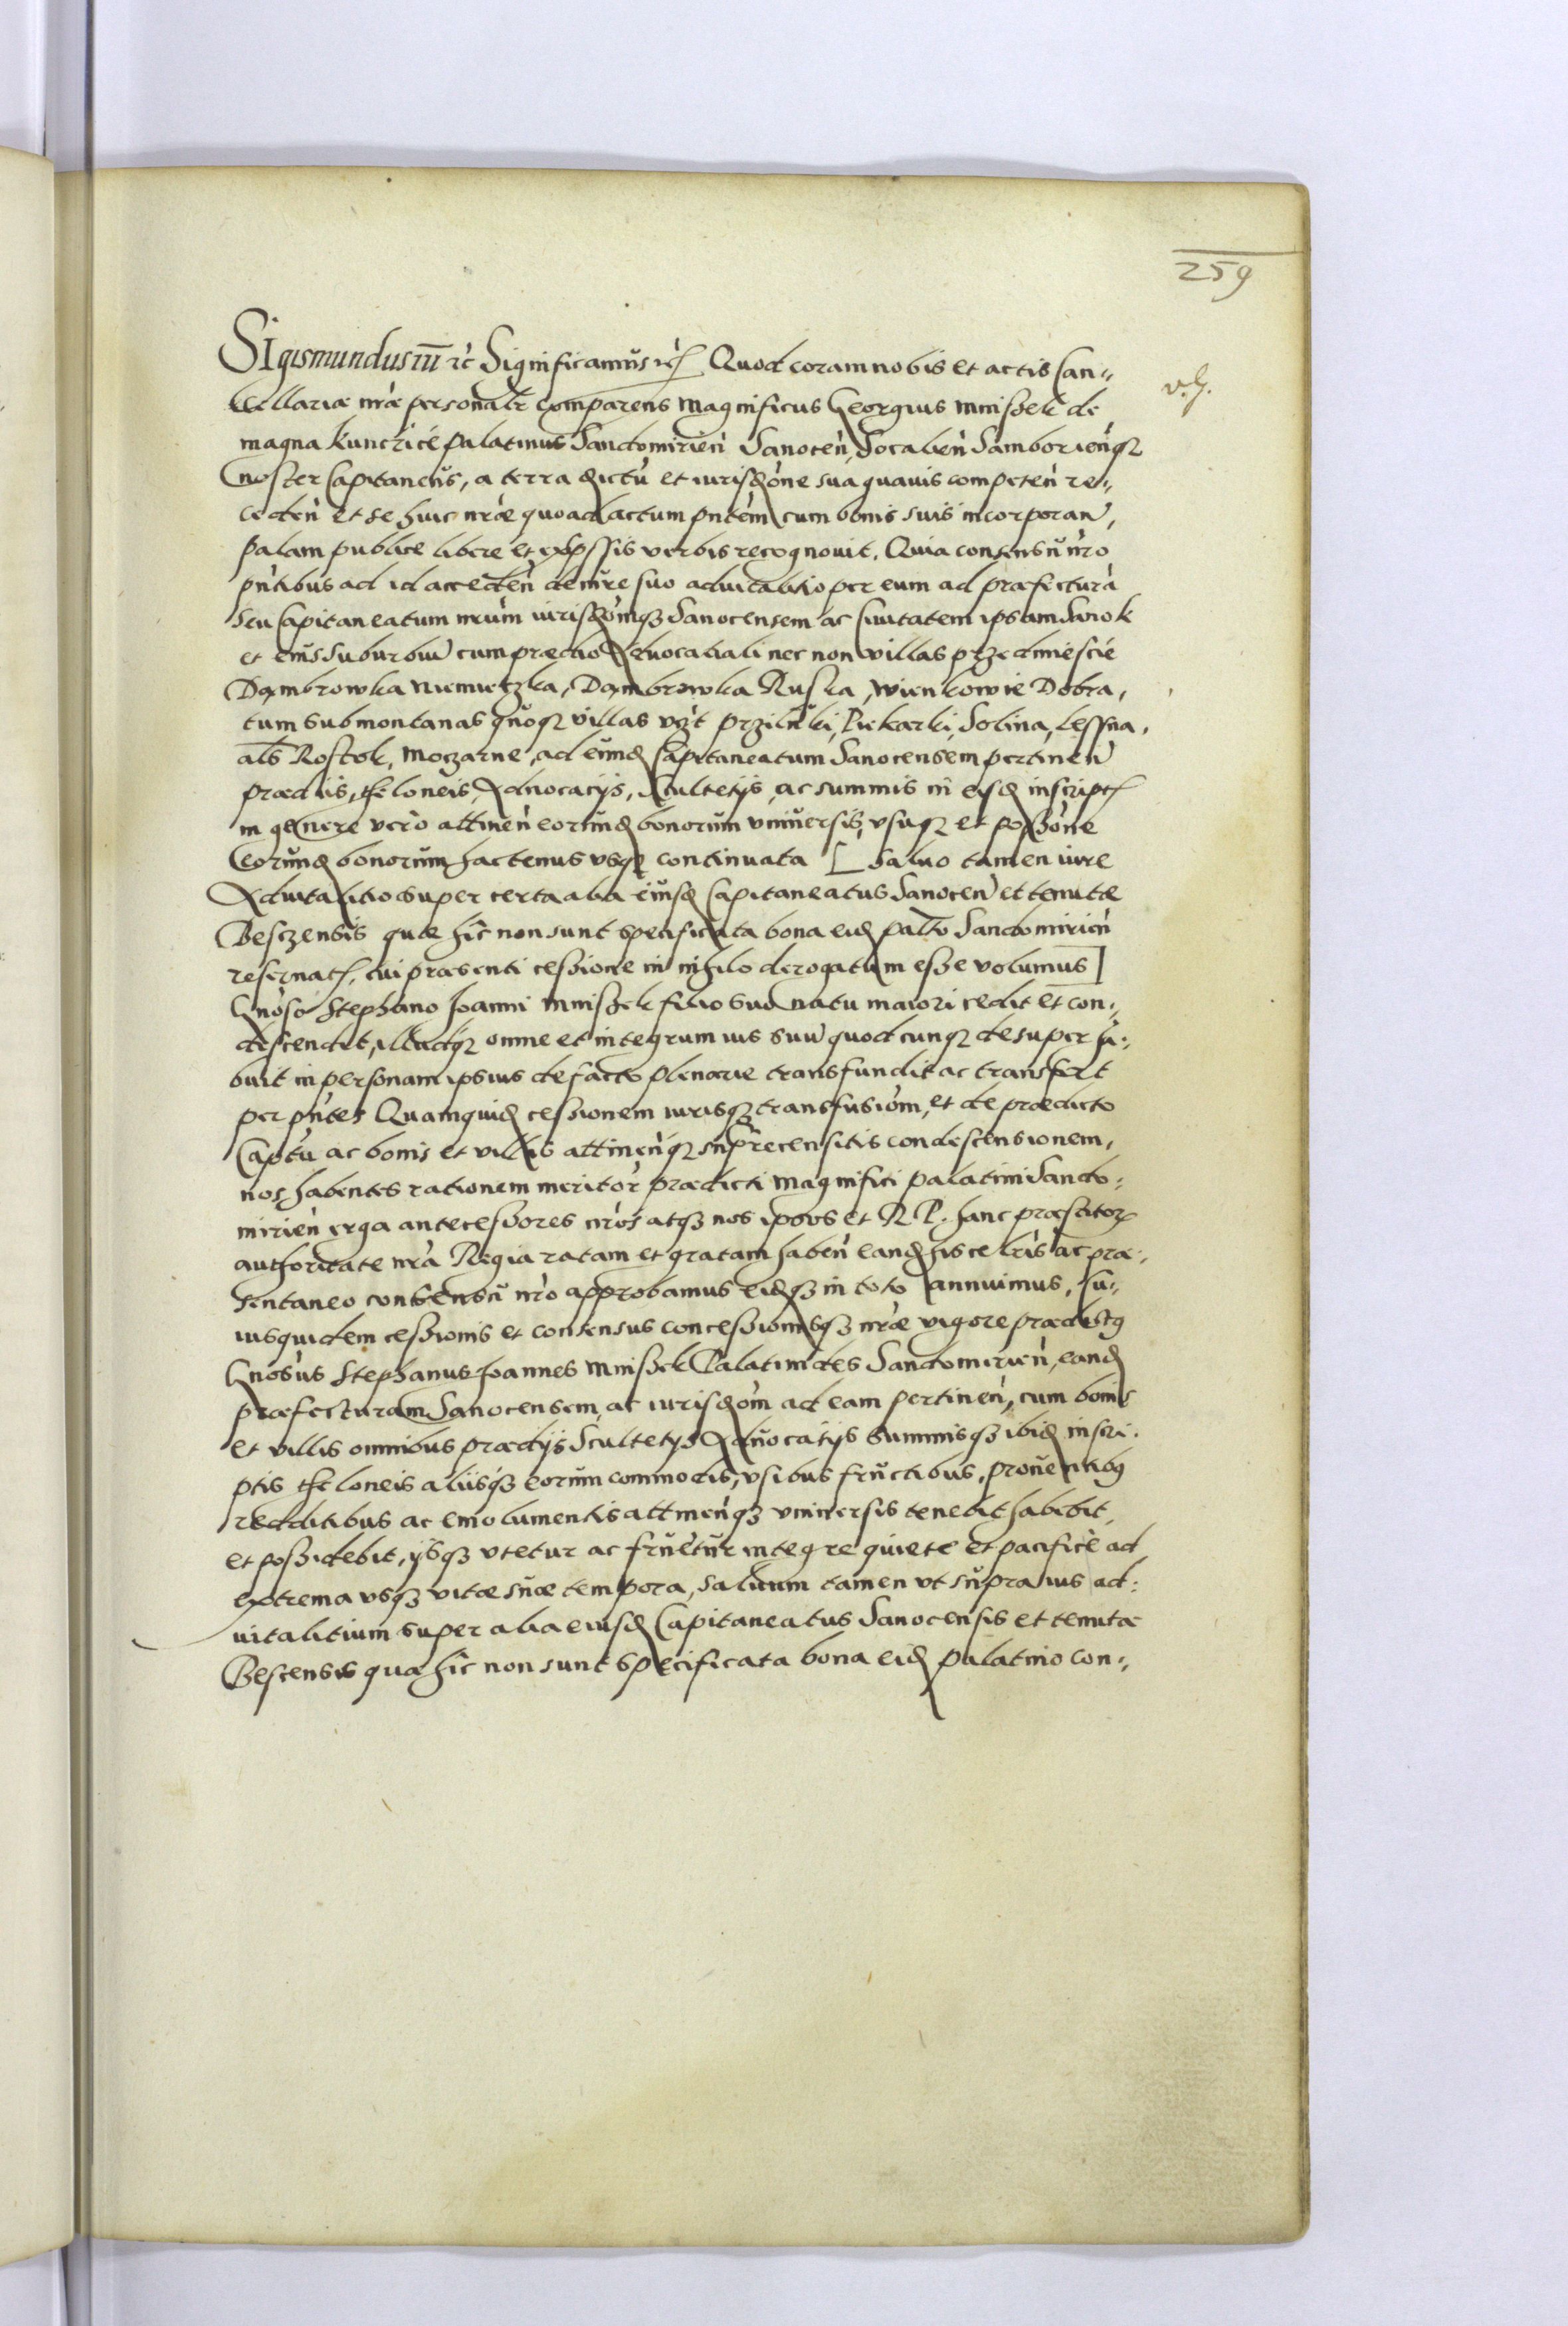 259
SIgismundus iij rc Significamus rc Quod coram nobis et actis Can-
cellariæ nræ personalr comparens Magnificus Georgius Mnischek de
magna Kunczice Palatinus Sandomirien Sanocen, Socalien Samborienq
noster Capitaneus, a terra dictu et iurisdone sua quauis competen re-
ceden et se huic nræ quoad actum pntem cum bonis suis incorporan,
palam publice libere et expssis verbis recognouit. Quia consensu nro
pntibus ad id acceden de iure suo aduitalitio per eum ad præfectura
seu Capitaneatum nrum iurisdomq Sanocensem ac Ciuitatem ipsam Sanok
et eius suburbiu cum prædio Aduocatiali nec non villas Przedmiescie
Dąmbrowka Niemietzka, Dąmbrowka Ruska, Wienkowie Dobra,
tum submontanas quoq villas vzt Pielarki, Solina, Lessna,
als Rostok, Moczarne, ad eund Capitaneatum Sanocensem pertinen
prædiis, theloneis, Aduocatijs, Scultetijs, ac summis in eisd inscript
in genere vero attinen eorund bonorum vniuersis, vsuq et possone
eorund bonorum hactenus vsq continuata [ Saluo tamen iure
Aduitalitio super certa alia eiusd Capitaneatus Sanocen et tenutæ
Besczensis quæ hic non sunt specificata bona eid Palto Sandomirien
reseruat, cui præsenti cessione in nihilo derogatum esse volumus]
Gnoso Stephano Joanni Mnischek filio suo natu maiori cedit et con-
descendit, illudq omne et integrum ius suu quodcunq desuper ha-
buit in personam ipsius de facto plenarie transfundit ac transfert
per pntes Quamquid cessionem iurisq transfusiom, et de prædicto
Captu ac bonis et villis attinenq suprecensitis condescensionem,
nos habentes rationem meritor prædicti Magnifici Palatini Sando-
mirien erga antecessores nros atq nos ipsos et R. P. hanc præstitor
authoritate nra Regia ratam et gratam haben eand hisce lris ac præ-
sentaneo consensu nro approbamus eidq in toto annuimus, Cu-
iusquidem cessionis et consensus concessionisq nræ vigore prædictus
Gnosus Stephanus Joannes Mnischek Palatinides Sandomirien, eand
præfecturam Sanocensem, ac iurisdom ad eam pertinen, cum bonis
et villis omnibus prædijs Scultetijs Aduocatijs summisq ibid inscri-
ptis theloneis aliisq eorum commodis, vsibus fructibus, prouentibus
redditibus ac emolumentis attinenq vniuersis tenebit habebit,
et possidebit, ijsq vtetur ac fruetur integre quiete et pacifice ad
extrema vsq vitæ suæ tempora, saluum tamen vt supra ius ad-
uitalitium super alia eiusd Capitaneatus Sanocensis et tenutæ
Bescensis quæ hic non sunt specificata bona eid Palatino con-